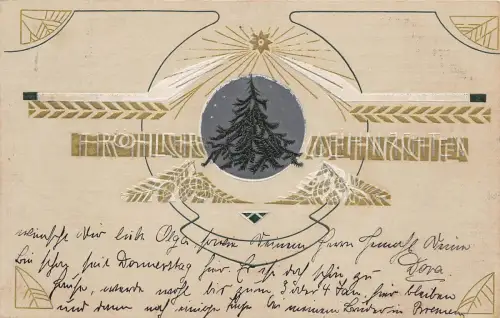 FRÖHLICHE WEIHNACHTEN
wünscht Dir liebe Olga sowie Deinem Herrn Gemahl Deine
Dora.
Bin schon seit Donnerstag hier. Es ist doch schön zu
Hause, werde wohl bis zum 3 oder 4 Jan. hier bleiben
und dann noch einige Tage bei meinem Bruder in Bremen